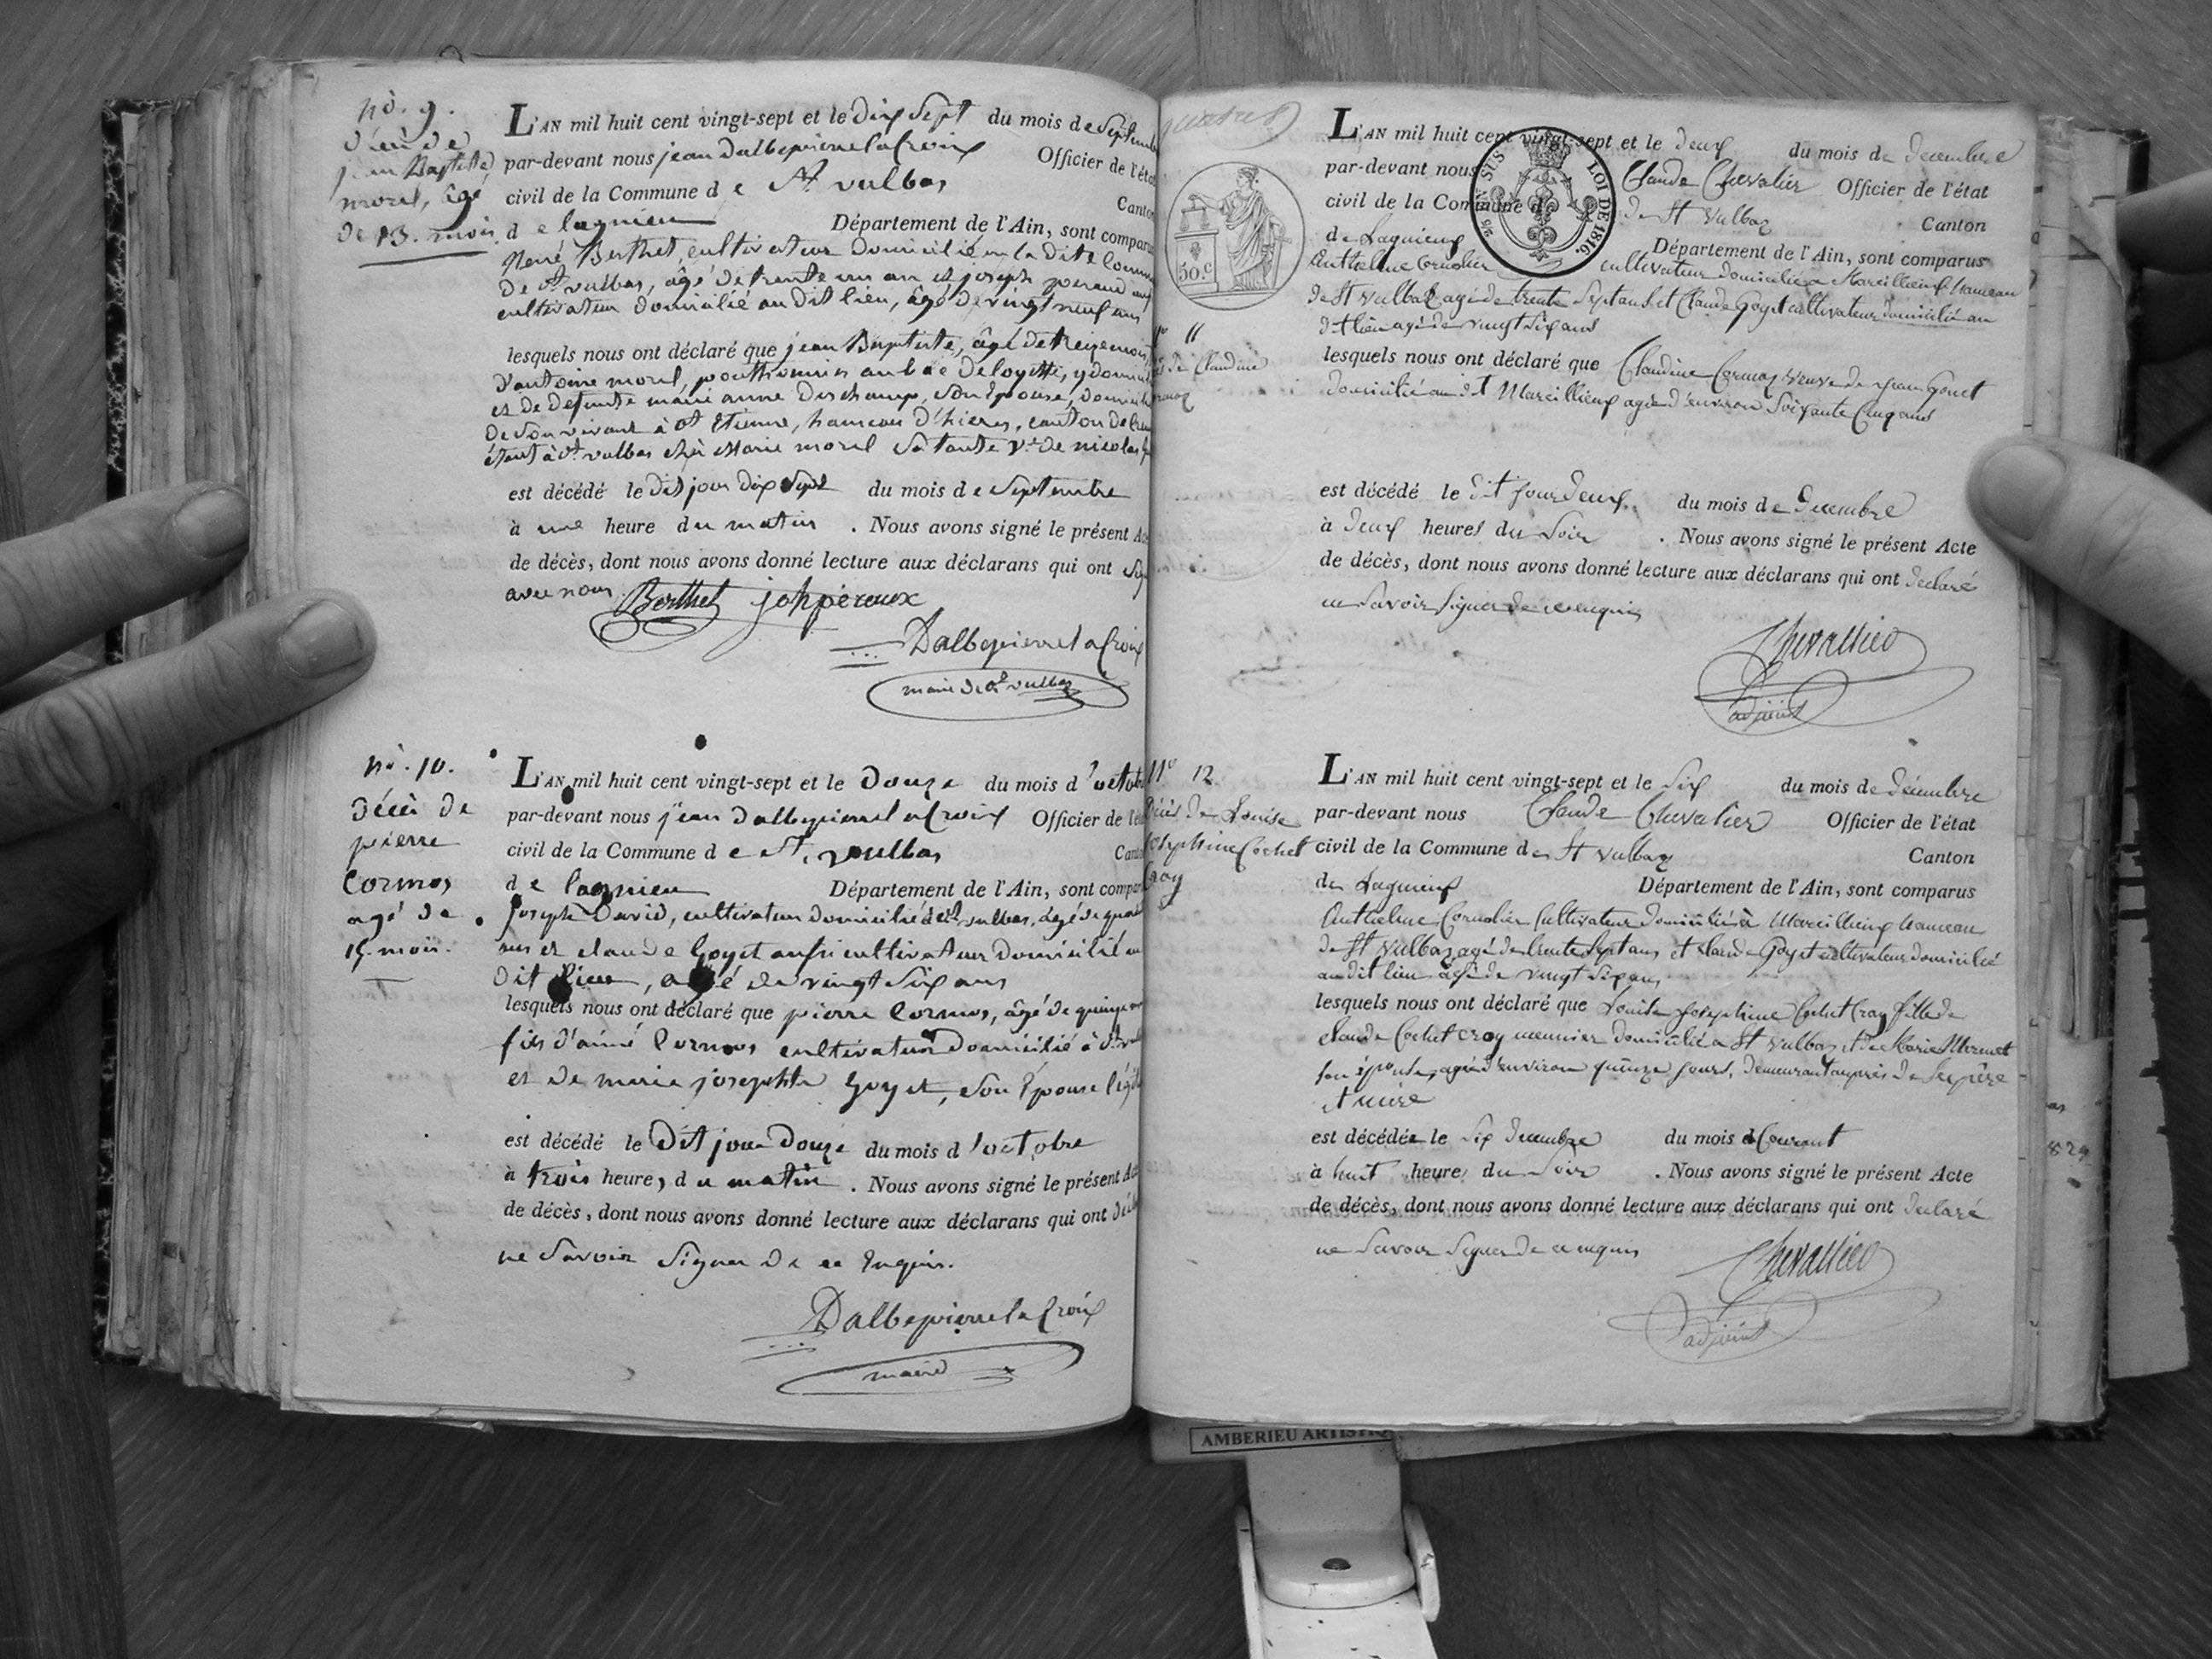 no. 9.
décès de
jean Baptiste
morel, âgé
de 13. mois
L'AN mil huit cent vingt-sept et le dix sept du mois de Septemb
par-devant nous jean Dalbepierre la Croix Officier de l'éta
civil de la Commune d e St vulbas Canton
d e lagnieu Département de l'Ain, sont compar
René Berthet, cultivateur domicilié en la dite Commu
de St vulbas, âgé de trente un an et joseph peraud
cultivateur domicilié au dit lieu, âgé de vingt neuf ans
lesquels nous ont déclaré que jean Baptiste, âgé de treize mois
d'antoine morel, au bac de loyettes, y domici
et de defunte marie anne Deschamp, son épouse, domicili
de son vivant à St Etienne, hameau d'hieres, canton de Crem
étant à St vulbas chez Marie morel sa tante Ve de nicolas
est décédé le dit jour dix sept du mois d e Septembre
à une heure du matin . Nous avons signé le présent Ac
de décès, dont nous avons donné lecture aux déclarans qui ont sig
avec nous Berthet joh péraux
Dalbepierre la Croix
maire de St vulbas
no. 10.
décès de
pierre
Cormos
agé de
15. mois.
L'AN mil huit cent vingt-sept et le Douze du mois d 'octob
par-devant nous jean Dalbepierre la Croix Officier de l'ét
civil de la Commune d e St. vulbas Cant
d e lagnieu Département de l'Ain, sont compar
joseph David, cultivateur domicilié à St vulbas, âgé de quar
ans et claude Goyet aussi cultivateur domicilié au
dit lieu, agé de vingt six ans
lesquels nous ont déclaré que pierre Cormos, âgé de quinze
fils d'aimé Cormos cultivateur domicilié à St vul
et de marie josephte Goyet, son épouse légit
est décédé le Dit jour Douze du mois d 'octobre
à trois heures d u matin . Nous avons signé le présent Ac
de décès, dont nous avons donné lecture aux déclarans qui ont décl
ne Savoir Signer de ce Enquis.
Dalbepierre la Croix
maire
50.c
EN SUS LOI DE 1816.
11
de Claudine
L'AN mil huit cent vingt-sept et le deux du mois de decembre
par-devant nous Claude Chevalier Officier de l'état
civil de la Commune d de St Vulbaz Canton
de Lagnieux Département de l'Ain, sont comparus
Anthelme Cornolier cultivateur domicilié a Marcillieux hameau
de St Vulbaz agé de trente Sept ans et Claude Goyet cultivateur domicilié au
dit lieu agé de vingt Six ans
lesquels nous ont déclaré que Claudine Cormoz veuve de Jean Gonet
domicilié au dit Marcillieux agée d'environ Soixante Cinq ans
est décédé le dit jour deux. du mois d e Decembre
à deux heures du Soir . Nous avons signé le présent Acte
de décès, dont nous avons donné lecture aux déclarans qui ont declaré
ne Savoir Signer de ce enquis
Chevallier
adjoint
No 12
Décès de Louise
Josephine Cochet
Cray
L'AN mil huit cent vingt-sept et le Six du mois de décembre
par-devant nous Claude Chevalier Officier de l'état
civil de la Commune de St Vulbaz Canton
de Lagnieux Département de l'Ain, sont comparus
Anthelme Cornolier Cultivateur domicilié à Marcillieux hameau
de St Vulbaz agé de trente Sept ans et Claude Goyet cultivateur domicilié
au dit lieu agé de vingt Six ans
lesquels nous ont déclaré que Louise Josephine Cochet Cray fille de
Claude Cochet Croy meunier domicilié a St Vulbas et de Marie Mermet
son épouse, agée d'environ quinze jours, demeurant auprès de Ses père
et mère
est décédée le Six decembre du mois d Courant
à huit heures du Soir . Nous avons signé le présent Acte
de décès, dont nous avons donné lecture aux déclarans qui ont declaré
ne Savoir Signer de ce enquis
Chevallier
adjoint
829
AMBERIEU ARTISTIQ